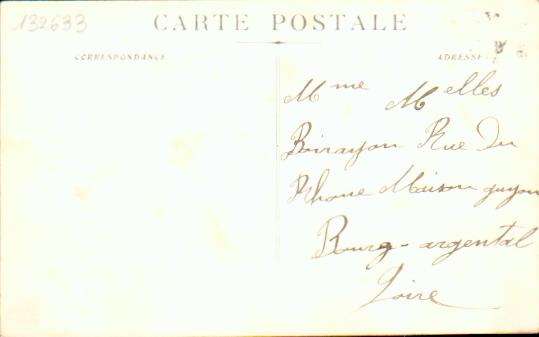 132633
CARTE POSTALE
CORRESPONDANCE
ADRESSE
Mme Melles
Boirayon Rue Du
Rhone Maison guyon
Bourg-argental
Loire